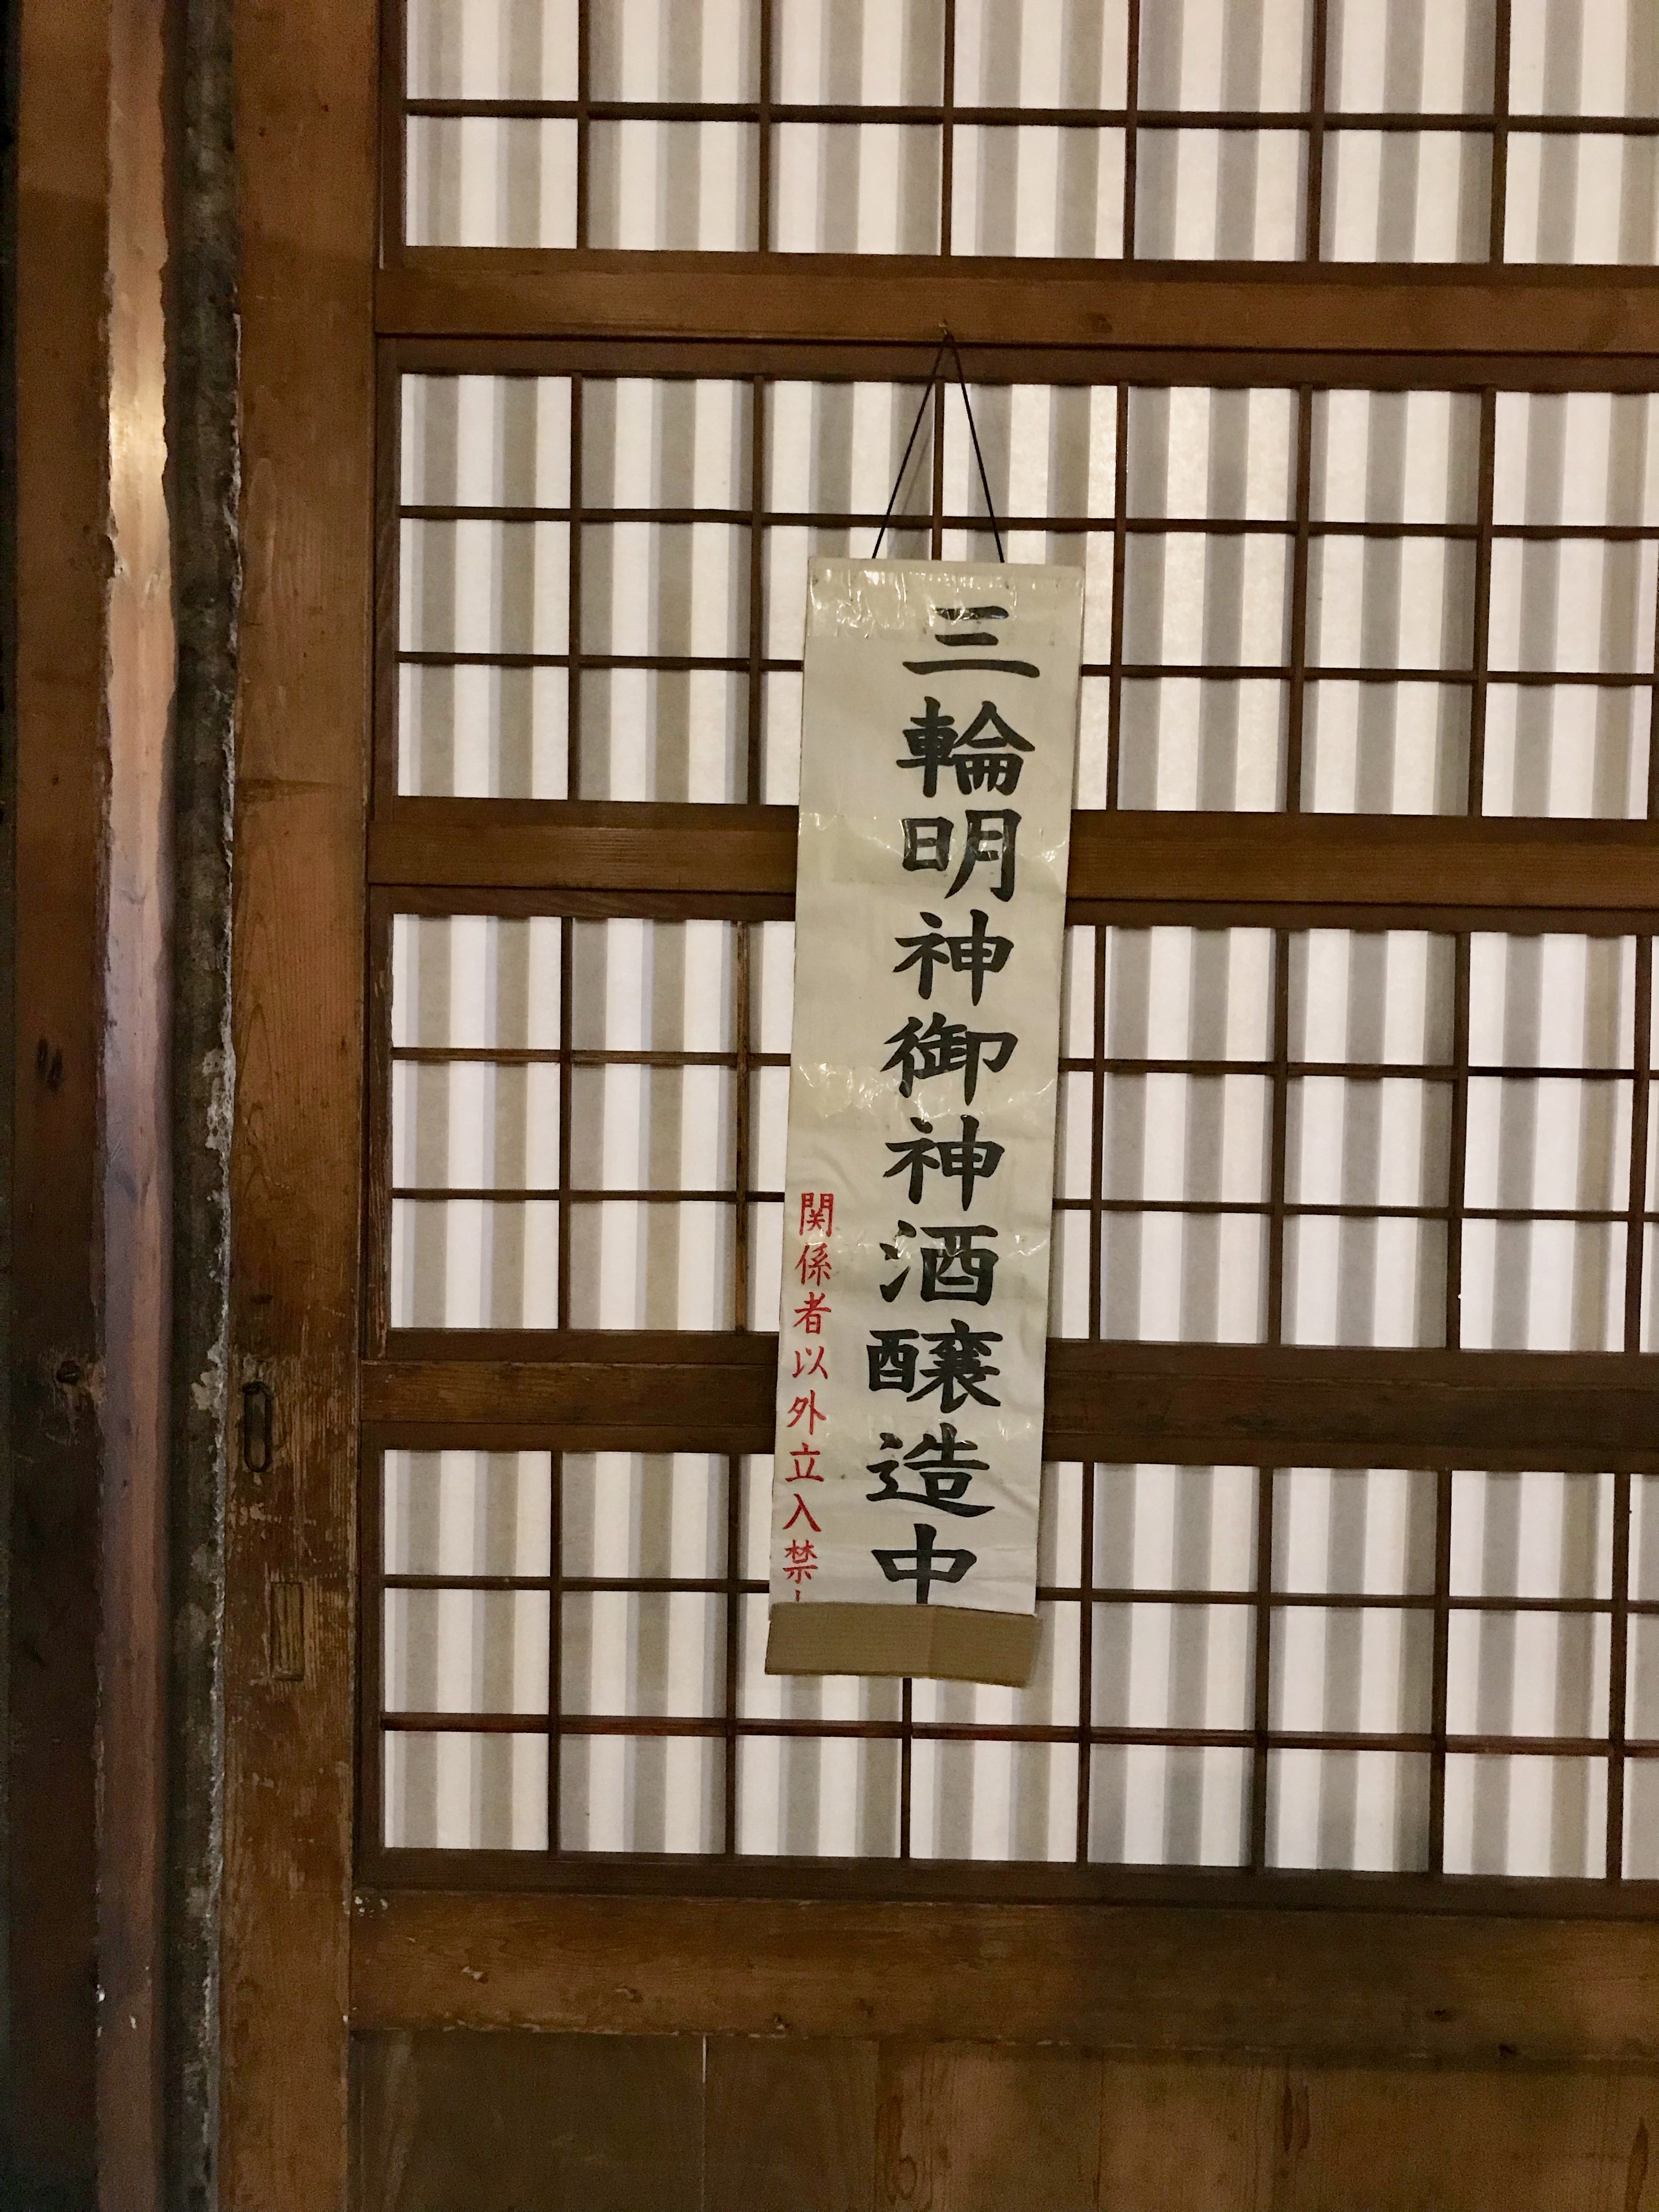 三輪明神御神酒醸造中
関係者以外立入禁止